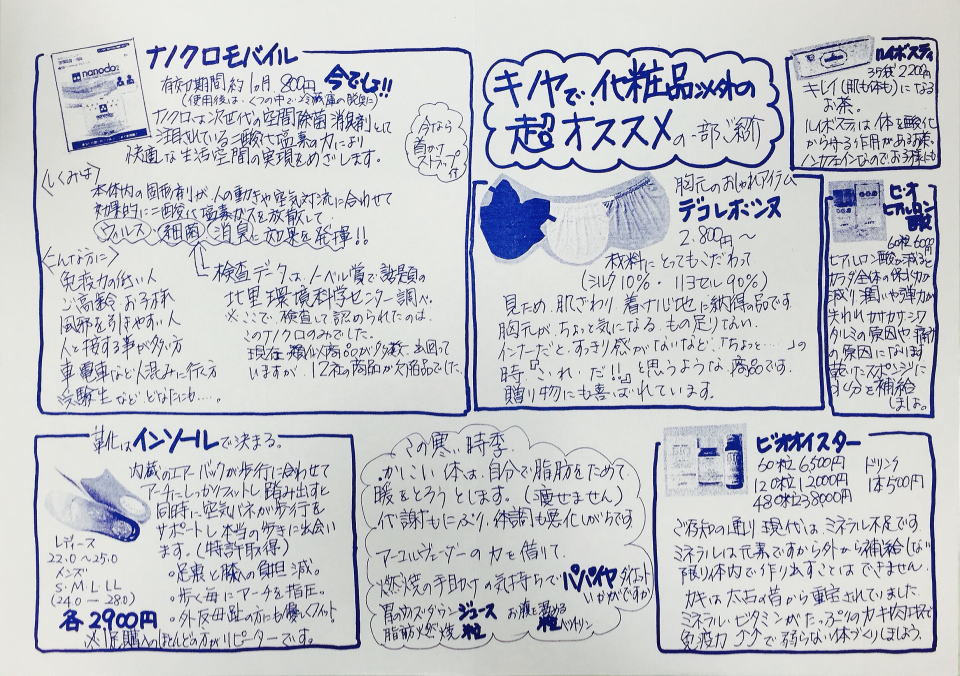 キノヤで、化粧品以外の
超オススメの一部ご紹介
ナノクロモバイル
nanoclo2
有効期間約1ヵ月 800円 今でしょ!!
(使用後は、くつの中で冷蔵庫の脱臭に)
ナノクロは次世代の空間除菌消臭剤として
注目されている二酸化塩素の力により
快適な生活空間の実現をめざします。
今なら
首かけ
ストラップ
付
<しくみは>
本体内の固形剤が人の動きや空気対流に合わせて
効果的に二酸化塩素ガスを放散して、
ウィルス 細菌 消臭に効果を発揮!!
<こんな方に>
免疫力の低い人
ご高齢 お子様
風邪を引きやすい人
人と接する事が多い方
車電車など人混みに行く方
受験生などどなたにも…。
検査データは、ノーベル賞で話題の
北里環境科学センター調べ。
※ここで、検査して認められたのは、
このナノクロのみでした。
現在類似商品が多数出回って
いますが、12社の商品が欠陥品でした。
胸元のおしゃれアイテム
デコレボンヌ
2.800円～
材料にとってもこだわって
(シルク10%・リヨセル90%)
見ため、肌ざわり、着ナじ地に納得の品です
胸元が、ちょっと気になる。もの足りない。
インナーだと、すっきり感がないなど、「ちょっと…」の
時「これ!だ!!」と思うような商品です。
贈り物にも喜ばれています。
ルイボスティ
35袋2.200円
キレイ(肌も体も)になる
お茶。
ルイボスティは体を酸化
から守る作用がある茶。
ノンカフェインなのでお子様にも
ビ・オ
ヒアルロン
酸
60粒6000円
ヒアルロン酸が減ると
カラダ全体の保水力が
減り潤いや弾力が
失われカサカサシワ
タルミの原因や痛み
の原因になります
乾いたスポンジに
水分を補給
しましょ。
靴はインソールで決まる。
内蔵のエアーバックが歩行に合わせて
アーチにしっかりフィットし踏み出すと
同時に、空気バネが歩行を
サポートし本当の歩きに出会い
ます。(特許取得)
レディース
22.0～25.0
メンズ
S・M・L・LL
(24.0～28.0)
各2900円
・足裏と膝への負担減。
・歩く毎にアーチを指圧。
・外反母趾の方にも優しくフィット
※ご購入のほとんどの方がリピーターです。
この寒い時季、
かしこい体は、自分で脂肪をためて
暖をとろうとします。(痩せません)
代謝もにぶり、体調も悪化しがちです
アーユルヴェーダーの力を借りて、
燃焼の手助けの気持ちでパパイヤダイエット
いかがですか
胃のカズダウン ジュース お腹を温める
脂肪燃焼 粒
ビオオイスター
60粒6500円
120粒12000円
480粒38000円
ドリンク
1本500円
ご存知の通り現代は、ミネラル不足です。
ミネラルは元素ですから外から補給しない
限り体内で作り出すことはできません。
カキは太古の昔から重宝されていました。
ミネラル・ビタミンがたっぷりのカキ肉エキスで
免疫力 グングンで弱らない体づくりしましょう。